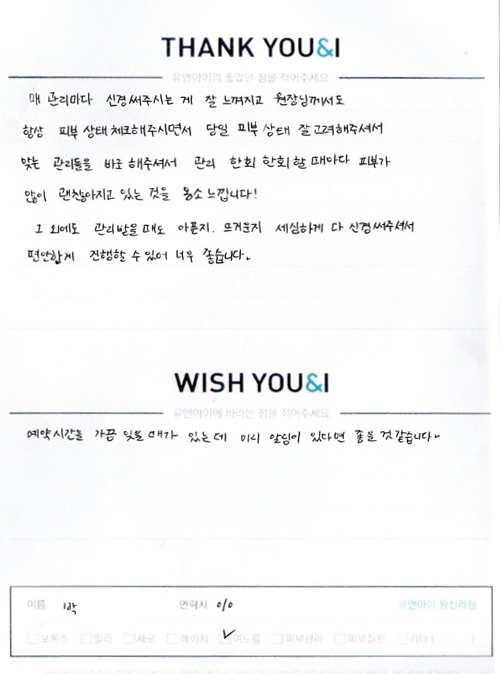 THANK YOU&I
유앤아이의 좋았던 점을 적어주세요
매 관리마다 신경써주시는 게 잘 느껴지고 원장님께서도
항상 피부 상태 체크해주시면서 당일 피부 상태 잘 고려해주셔서
맞는 관리들을 바로 해주셔서 관리 한회 한회 할 때마다 피부가
많이 괜찮아지고 있는 것을 몸소 느낍니다!
그 외에도 관리받을 때도 아픈지, 뜨거운지 세심하게 다 신경써주셔서
편안하게 진행할 수 있어 너무 좋습니다.
WISH YOU&I
유앤아이에 바라는 점을 적어주세요
예약시간을 가끔 잊을 때가 있는데 미리 알림이 있다면 좋을 것 같습니다.
이름 박 연락처 010 유앤아이 왕십리점
보톡스 필러 제모 레이저 여드름 피부관리 피부질환 기타 ( )